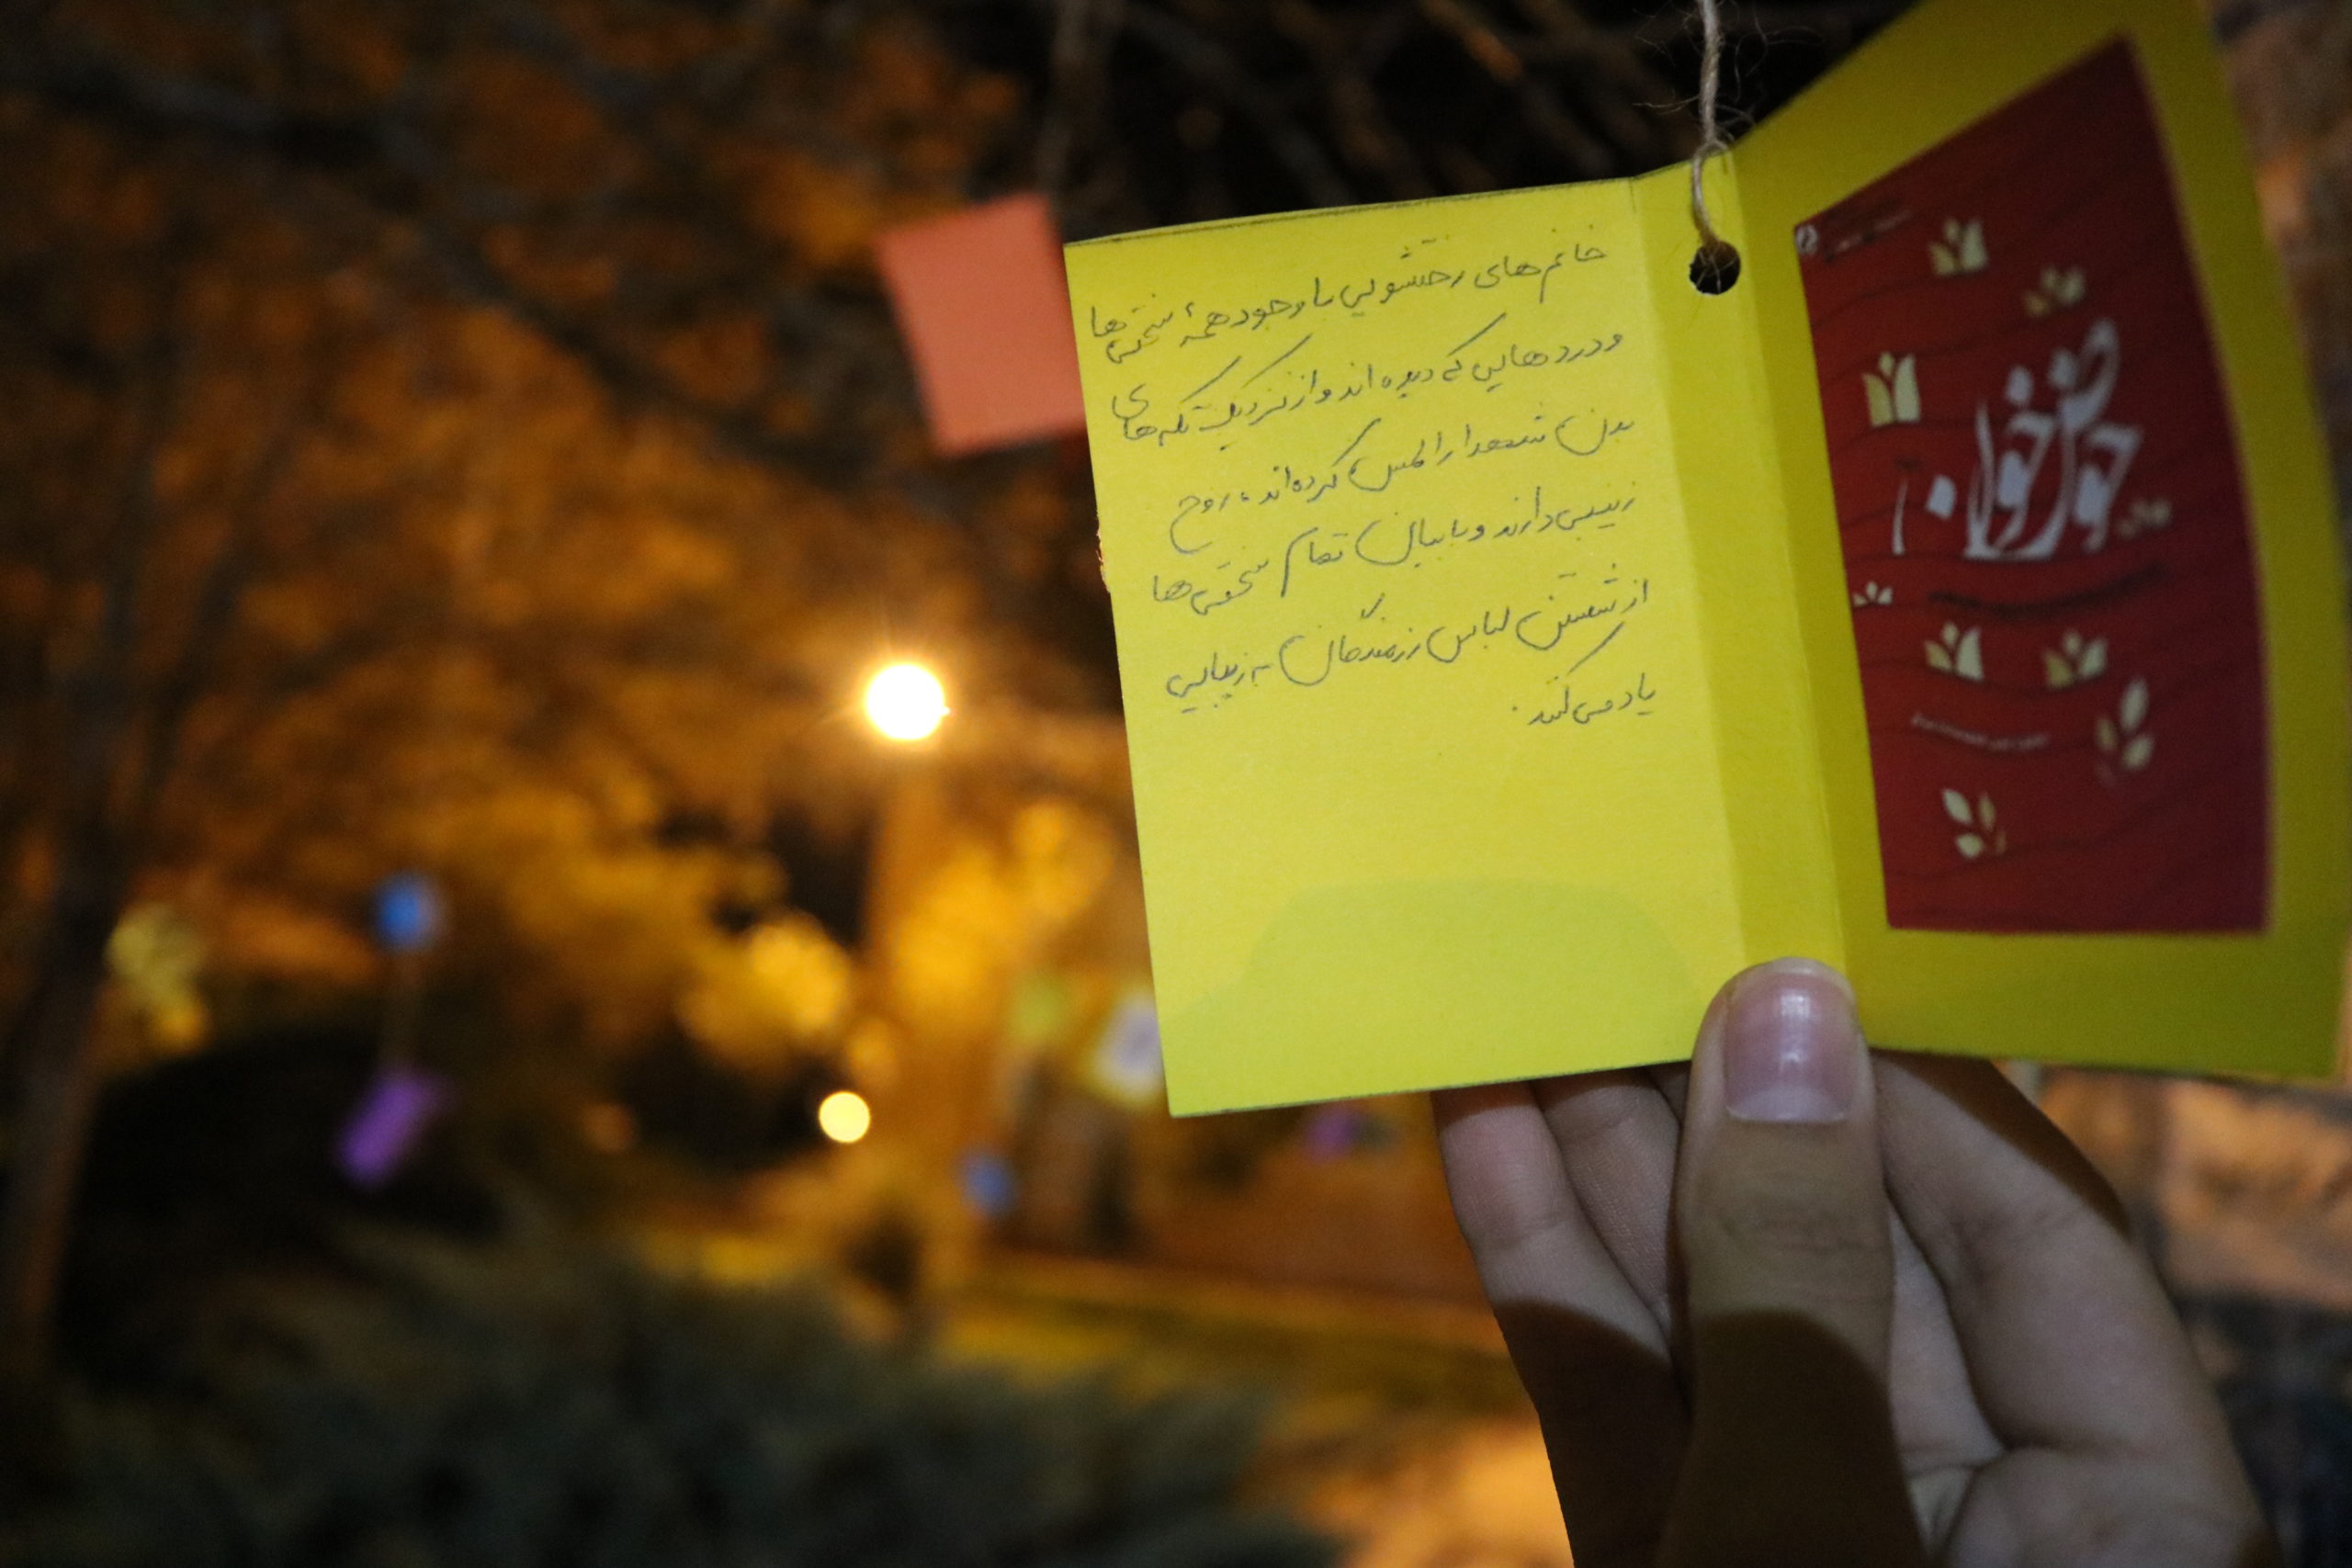 خانم‌های رختشویی با وجود همهٔ سختی‌ها
و درد‌هایی که دیده‌اند و از نزدیک تکه‌های
بدن شهدا را لمس کرده‌اند، روح
زینبی دارند و با بیان تمام سختی‌ها
از شستن لباس رزمندگان به زیبایی
یاد می‌کنند.
حوض خون